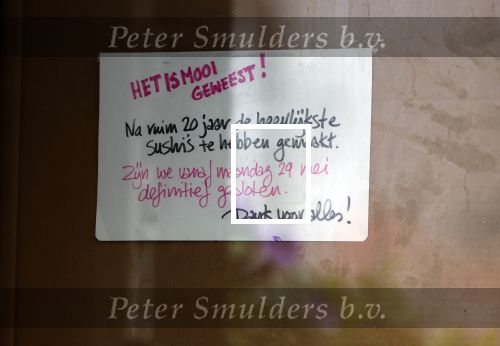 Peter Smulders b.v.
HET IS MOOI
GEWEEST!
Na ruim 20 jaar de heerlijkste
sushi's te hebben gemaakt.
Zijn we vanaf maandag 29 mei
definitief gesloten.
~Dank voor alles!
Peter Smulders b.v.